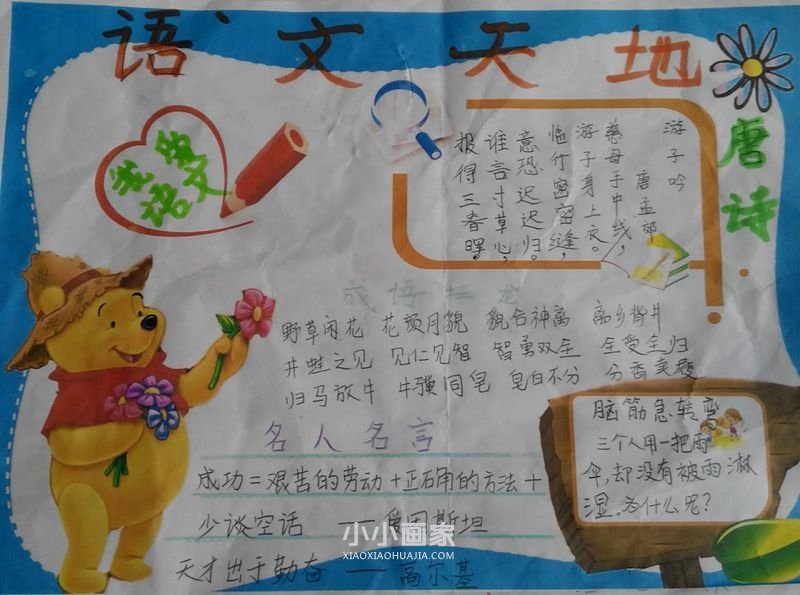 语文天地
我爱
语文
唐诗
游子吟
唐 孟郊
慈母手中线，
游子身上衣。
临行密密缝，
意恐迟迟归。
谁言寸草心，
报得三春晖。
成语接龙
野草闲花 花颜月貌 貌合神离 离乡背井
井蛙之见 见仁见智 智勇双全 全受全归
归马放牛 牛骥同皂 皂白不分 分香卖履
名人名言
成功=艰苦的劳动+正确的方法+
少谈空话 ——爱因斯坦
天才出于勤奋 ——高尔基
脑筋急转弯
三个人用一把雨
伞，却没有被雨淋
湿。为什么呢？
小小画家
XIAOXIAOHUAJIA.COM